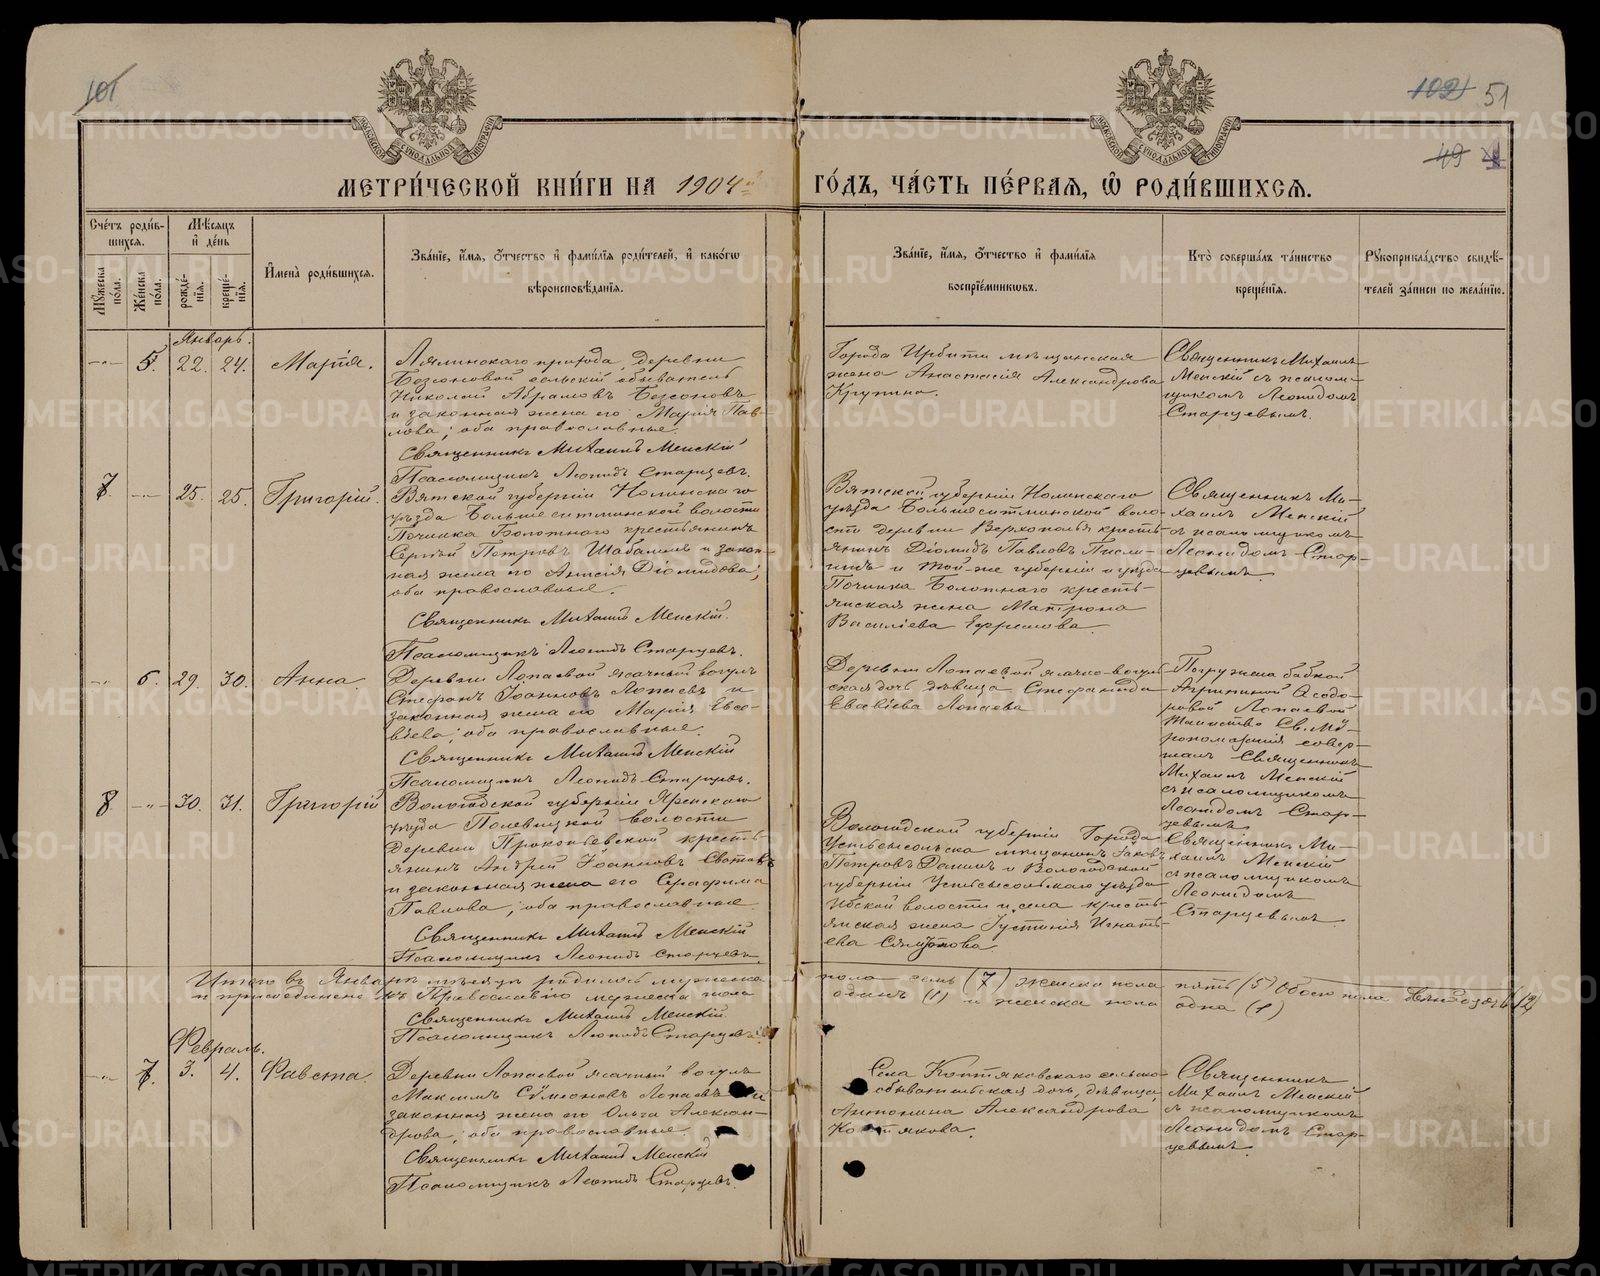 101
102 51
49
МЕТРИ́ЧЕСКОЙ КНИ́ГИ НА 1904й ГО́ДЪ, ЧА́СТЬ ПЕ́РВАЯ, Ѽ РОДИ́ВШИХСЯ.
Сче́тъ роди́вшихся.
Му́жеска по́ла.
Же́нска по́ла.
Мѣ́сяцъ и҆ де́нь
рожде́нїя.
креще́нїя.
И҆мена̀ роди́вшихся.
Зва́нїе, и҆́мя, ѻ҆́тчество и҆ фами́лїя роди́телей, и҆ како́гѡ
вѣроисповѣ́данїя.
Зва́нїе, и҆́мя, ѻ҆́тчество и҆ фами́лїя
воспрїе́мникѡвъ.
Кто̀ соверша́лъ та́инство
креще́нїя.
Рꙋкоприкла́дство свидѣ́-
телей за́писи по жела́нїю.
Январь.
-„- 5. 22. 24. Марія.
Лялинскаго прихода, деревни
Безсоновой сельскій обыватель
Николай Абрамовъ Безсоновъ
и законная жена его Марія Пав-
лова; оба православные.
Священникъ Михаилъ Менскій
Псаломщикъ Леонидъ Старцевъ.
Города Ирбити мѣщанская
жена Анастасія Александрова
Крупина.
Священникъ Михаилъ
Менскій съ псалом-
щикомъ Леонидомъ
Старцевымъ.
7. -„- 25. 25. Григорій.
Вятской губерніи Нолинскаго
уѣзда Большеситминской волости
Починка Болотнаго крестьянинъ
Сергѣй Петровъ Шабалинъ и закон-
ная жена его Анисія Діомидова;
оба православные.
Священникъ Михаилъ Менскій.
Псаломщикъ Леонидъ Старцевъ.
Вятской губерніи Нолинскаго
уѣзда Большеситминской воло-
сти деревни Верхополья кресть-
янинъ Діомидъ Павловъ
и той-же губерніи и уѣзда
Починка Болотнаго кресть-
янская жена Матрона
Василіева Ефремова.
Священникъ Ми-
хаилъ Менскій
съ псаломщикомъ
Леонидомъ Стар-
цевымъ
-„- 6. 29. 30. Анна.
Деревни Лопаевой ясачный вогулъ
Стефанъ Іоанновъ Лопаевъ и
законная жена его Марія Евсе-
віева; оба православные.
Священникъ Михаилъ Менскій
Псаломщикъ Леонидъ Старцевъ.
Деревни Лопаевой ясачно-вогуль-
ская дочь дѣвица Стефанида
Евсевіева Лопаева
Погружена бабкой
Агрипиной Ѳеодо-
ровой Лопаевой
Таинство Св. Мѵ-
ропомазанія совер-
шалъ Священникъ
Михаилъ Менскій
съ псаломщикомъ
Леонидомъ Стар-
цевымъ
8 -„- 30. 31. Григорій
Вологодской губерніи Яренскаго
уѣзда Палевицкой волости
деревни Прокопьевской кресть-
янинъ Андрей Іоанновъ
и законная жена его Серафима
Павлова; оба православные
Священникъ Михаилъ Менскій
Псаломщикъ Леонидъ Старцевъ.
Вологодской губерніи Города
Устьсысольска мѣщанинъ Іаковъ
Петровъ и Вологодской
губерніи Устьсысольскаго уѣзда
Ибской волости и села кресть-
янская жена Іустинія Игнать-
ева
Священникъ Ми-
хаилъ Менскій
съ псаломщикомъ
Леонидомъ
Старцевымъ
Итого въ Январѣ мѣсяцѣ родилось мужеска пола семь (7) женска пола пять (5) Обоего пола двѣнадцать (12)
и присоединено къ Православію мужеска пола одинъ (1) и женска пола одна (1)
Священникъ Михаилъ Менскій
Псаломщикъ Леонидъ Старцевъ
Февраль.
-„- 7. 3. 4. Фавста.
Деревни Лопаевой ясачный вогулъ
Максимъ Сѵмеоновъ Лопаевъ и
законная жена его Ольга Алексан-
дрова; оба православные.
Священникъ Михаилъ Менскій
Псаломщикъ Леонидъ Старцевъ.
Села Коптяковскаго сельско-
обывательская дочь, дѣвица,
Антонина Александрова
Коптякова.
Священникъ
Михаилъ Менскій
съ псаломщикомъ
Леонидомъ Стар-
цевымъ.
METRIKI.GASO-URAL.RU